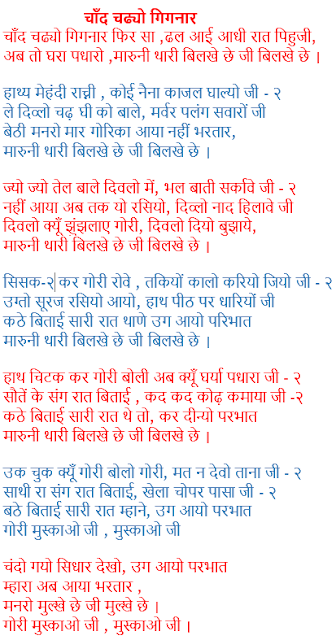 चाँद चढ्यो गिगनार
चाँद चढ्यो गिगनार फिर सा ,ढल आई आधी रात पिहुजी,
अब तो घरा पधारो ,मारुनी थारी बिलखे छे जी बिलखे छे ।
हाथ्य मेहंदी राच्नी , कोई नैना काजल घाल्यो जी - २
ले दिव्लो चढ़ घी को बाले, मर्वर पलंग सवारों जी
बेठी मनरो मार गोरिका आया नहीं भरतार,
मारुनी थारी बिलखे छे जी बिलखे छे ।
ज्यो ज्यो तेल बाले दिवलो में, भल बाती सर्कावे जी - २
नहीं आया अब तक यो रसियो, दिव्लो नाद हिलावे जी
दिवलो क्यूँ झुंझलाए गोरी, दिवलो दियो बुझाये,
मारुनी थारी बिलखे छे जी बिलखे छे ।
सिसक-२ कर गोरी रोवे , तकियों कालो करियो जियो जी - २
उग्तो सूरज रसियो आयो, हाथ पीठ पर धारियों जी
कठे बिताई सारी रात थाणे उग आयो परिभात
मारुनी थारी बिलखे छे जी बिलखे छे ।
हाथ चिटक कर गोरी बोली अब क्यूँ घर्या पधारा जी - २
सौतें के संग रात बिताई , कद कद कोढ़ कमाया जी -२
कठे बिताई सारी रात थे तो, कर दीन्यो परभात
मारुनी थारी बिलखे छे जी बिलखे छे ।
उक चुक क्यूँ गोरी बोलो गोरी, मत न देवो ताना जी - २
साथी रा संग रात बिताई, खेला चोपर पासा जी - २
बठे बिताई सारी रात म्हाने, उग आयो परभात
गोरी मुस्काओ जी , मुस्काओ जी
चंदो गयो सिधार देखो, उग आयो परभात
म्हारा अब आया भरतार ,
मनरो मुल्खे छे जी मुल्खे छे ।
गोरी मुस्काओ जी , मुस्काओ जी ।